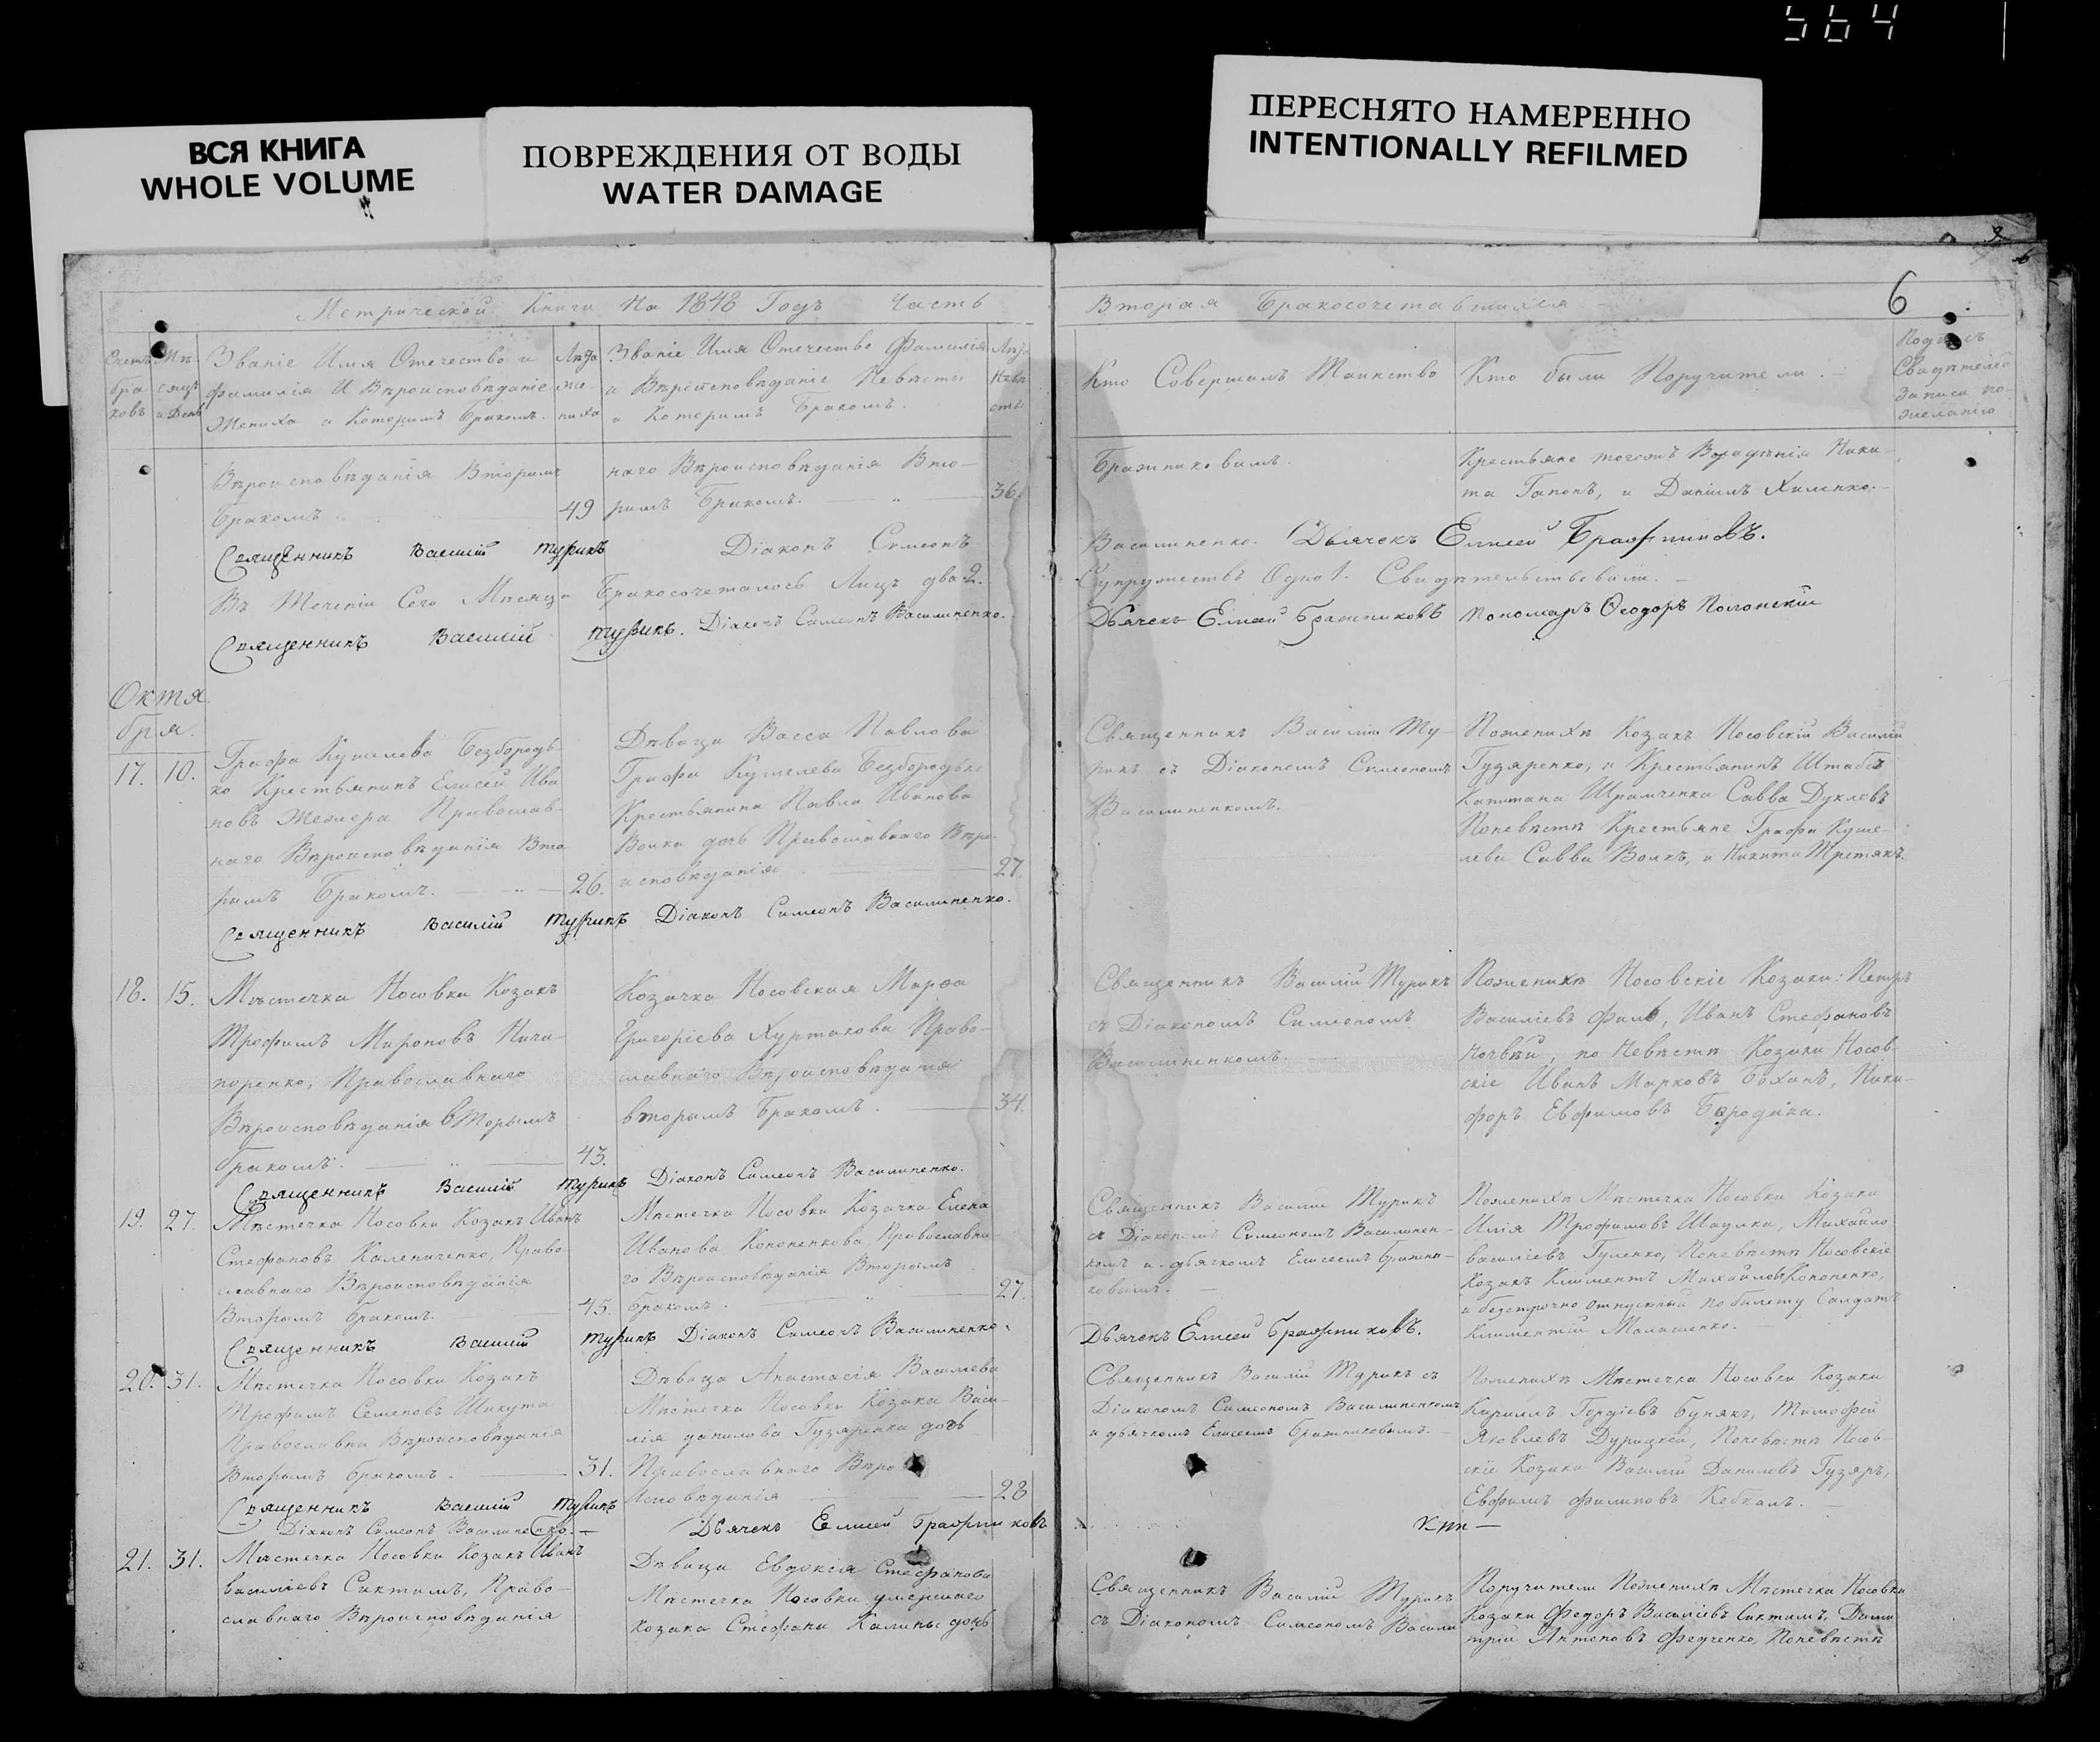 564
ВСЯ КНИГА
WHOLE VOLUME
ПОВРЕЖДЕНИЯ ОТ ВОДЫ
WATER DAMAGE
ПЕРЕСНЯТО НАМЕРЕННО
INTENTIONALLY REFILMED
6
Метрической Книги На 1848 Годъ Часть
Вторая Бракосочетавшихся
Счетъ бра ковъ
Мѣ сяцъ и День
Званіе Имя Отечество и
фамилія И Вѣроисповѣданіе
Жениха и Которимъ бракомъ.
Лѣта же- ниха
Званіе Имя Отечество Фамилія
и Вѣроисповѣданіе Невѣсты
и Которимъ Бракомъ.
Лѣта Невѣ сты
Кто Совершалъ Таинство
Кто были Поручители.
Подпись
Свидѣтелей
Записи по
желанію
Вѣроисповѣданія Вторимъ
Бракомъ. 49
наго Вѣроисповѣданія Вто-
римъ Бракомъ. 36.
Бражниковимъ.
Крестьяне тогожъ Владѣнія Ники-
та Гапонъ, и Даніилъ Хименко.
Священникъ Василій Турикъ Діаконъ Симеонъ
Василиненко. Дьячекъ Елисей Бражниковъ.
Въ Теченіи Сего Мѣсяца Бракосочеталось Лицъ два 2.
Супружествъ Одно 1. Свидѣтельствовали.
Священникъ Василій Турикъ. Діаконъ Симеонъ Василиненко.
Дьячекъ Елисей Бражниковъ Пономарь Ѳеодоръ Полонскій
Октя
бря.
17. 10.
Графа Кушелева Безбородь-
ко Крестьянинъ Елисей Ива
новъ Православ-
наго Вѣроисповѣданія Вто
римъ Бракомъ. 26.
Дѣвица Васса Павлова
Графа Кушелева Безбородька
Крестьянина Павла Иванова
Волка дочь Православнаго Вѣро-
исповѣданія 27.
Священникъ Василій Ту-
рикъ съ Діакономъ Симеономъ
Василиненкомъ.
Пожениху Козакъ Носовскій Василій
Гузяренко, и Крестьянинъ Штабсъ
Капитана Шрамченка Савва Дуклевъ
Поневѣстѣ Крестьяне Графа Куше-
лева Савва Волкъ, и Никита Третякъ.
Священникъ Василій Турикъ Діаконъ Симеонъ Василиненко.
18. 15.
Мѣстечка Носовки Козакъ
Трофимъ Мироновъ Ничи-
поренко, Православнаго
Вѣроисповѣданія вторымъ
бракомъ. 43.
Козачка Носовская Марѳа
Григоріева Хуртакова Право-
славнаго Вѣроисповѣданія
вторымъ Бракомъ. 34.
Священникъ Василій Турикъ
съ Діакономъ Симеономъ
Василиненкомъ.
Поженихѣ Носовскіе Козаки: Петръ
Василіевъ Филь, Иванъ Стефановъ
Ночвѣй, по Невѣстѣ Козаки Носов-
скіе Иванъ Марковъ Боханъ, Ники-
форъ Евфимовъ Бородака.
Священникъ Василій Турикъ Діаконъ Симеонъ Василиненко.
19. 27.
Мѣстечка Носовки Козакъ Иванъ
Стефановъ Калениченко, Право-
славнаго Вѣроисповѣданія
Вторымъ бракомъ. 45.
Мѣстечка Носовки Козачка Елена
Иванова Кононенкова, Православна-
го Вѣроисповѣданія Вторымъ
бракомъ. 27.
Священникъ Василій Турикъ
съ Діакономъ Симеономъ Василинен-
комъ и дьячкомъ Елисеемъ Бражни-
ковымъ.
Поженихѣ Мѣстечка Носовки Козаки
Илія Трофимовъ Шаулка, Михайло
василіевъ Гуленко, Поневѣстѣ Носовскіе
Козакъ Климентъ Михайловъ Кононенко,
и безсрочно отпускный по билету Салдатъ
Климентій Малашенко.
Священникъ Василій Турикъ Діаконъ Симеонъ Василиненко.
Дьячекъ Елисей Бражниковъ.
20. 31.
Мѣстечка Носовки Козакъ
Трофимъ Семеновъ Шикута
Православна Вѣроисповѣданія
Вторымъ бракомъ. 31.
Дѣвица Анастасія Василіева
Мѣстечка Носовки Козака Васи-
лія данилова Гузяренка дочь
Православнаго Вѣро
исповѣданія 28
Священникъ Василій Турикъ съ
Діакономъ Симеономъ Василиненкомъ
и дьячкомъ Елисеемъ Бражниковымъ.
Поженихѣ Мѣстечка Носовки Козаки
Кириллъ Гордіевъ Бунякъ, Тимофей
Яковлевъ Дурицкой, Поневѣстѣ Носов-
скіе Козаки Василій Даниловъ Гузяръ,
Евфимъ филиповъ Кебкалъ.
Священникъ Василій Турикъ
Діаконъ Симеонъ Василиненко.
Дьячекъ Елисей Бражниковъ
21. 31.
Мѣстечка Носовки Козакъ Иванъ
василіевъ Сиктимъ, Право-
славнаго Вѣроисповѣданія
Дѣвица Евдокія Стефанова
Мѣстечка Носовки умершаго
козака Стефана Калины дочь
Священникъ Василій Турикъ
съ Діакономъ Симеономъ Васили
Поручители Поженихѣ Мѣстечка Носовки
Козаки Федоръ Василіевъ Сиктимъ, Дими
трій Антоновъ Федченко, Поневѣстѣ